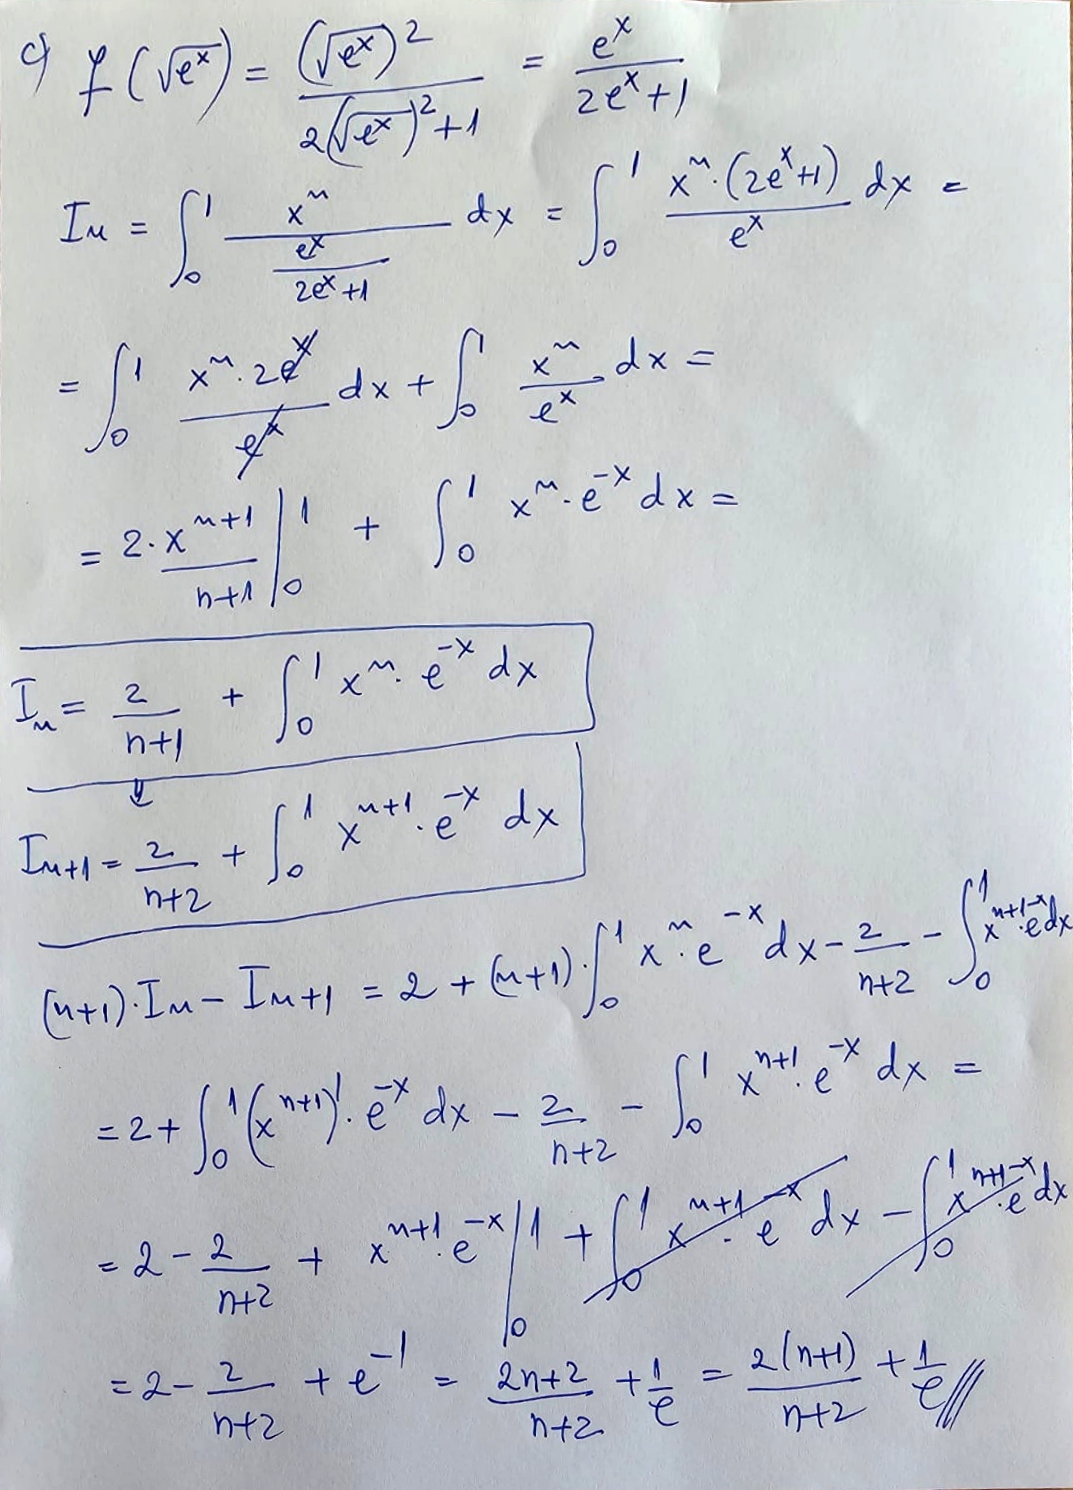 c) f(√eˣ) = (√eˣ)² / (2(√eˣ)²+1) = eˣ / (2eˣ+1)
Iₙ = ∫₀¹ xⁿ / (eˣ / (2eˣ+1)) dx = ∫₀¹ xⁿ·(2eˣ+1) / eˣ dx =
= ∫₀¹ xⁿ·2eˣ / eˣ dx + ∫₀¹ xⁿ / eˣ dx =
= 2·xⁿ⁺¹ / (n+1) |₀¹ + ∫₀¹ xⁿ·e⁻ˣ dx =
Iₙ = 2 / (n+1) + ∫₀¹ xⁿ·e⁻ˣ dx
↓
Iₙ₊₁ = 2 / (n+2) + ∫₀¹ xⁿ⁺¹·e⁻ˣ dx
(n+1)·Iₙ − Iₙ₊₁ = 2 + (n+1)·∫₀¹ xⁿ·e⁻ˣ dx − 2 / (n+2) − ∫₀¹ xⁿ⁺¹·e⁻ˣ dx
= 2 + ∫₀¹ (xⁿ⁺¹)'·e⁻ˣ dx − 2 / (n+2) − ∫₀¹ xⁿ⁺¹·e⁻ˣ dx =
= 2 − 2 / (n+2) + xⁿ⁺¹·e⁻ˣ |₀¹ + ∫₀¹ xⁿ⁺¹·e⁻ˣ dx − ∫₀¹ xⁿ⁺¹·e⁻ˣ dx
= 2 − 2 / (n+2) + e⁻¹ = (2n+2) / (n+2) + 1/e = 2(n+1) / (n+2) + 1/e